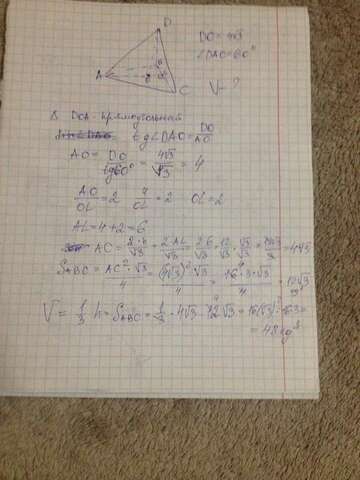 D
DO = 4√3
∠DAO = 60°
A
O
L
C
V - ?
В DOA - прямоугольный
tg∠DAO = DO/AO
AO = DO/tg60° = 4√3/√3 = 4
AO/OL = 2 4/OL = 2 OL = 2
AL = 4 + 2 = 6
AC = 2·h/√3 = 2AL/√3 = 2·6/√3 = 12/√3 · √3/√3 = 12√3/3 = 4√3
S_ABC = AC²·√3/4 = (4√3)²·√3/4 = 16·3·√3/4 = 12√3
V = 1/3 h = S_ABC = 1/3 · 4√3 · 12√3 = 16(√3)² = 16·3 =
= 48